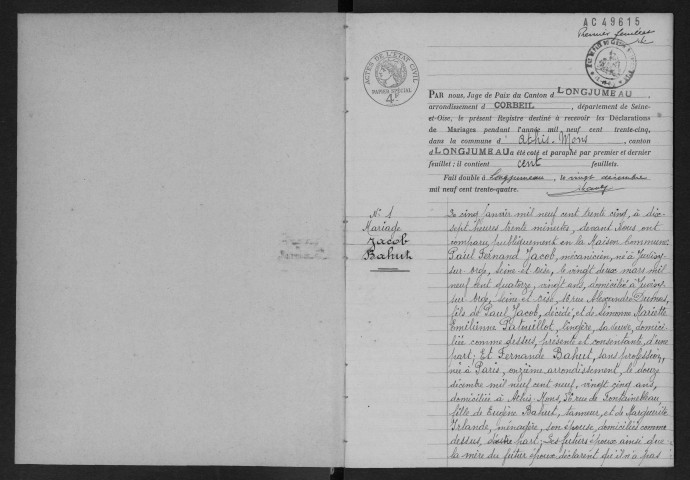 AC 49615
Premier feuillet
ACTES DE L'ÉTAT CIVIL
PAPIER SPÉCIAL
4F
PAR nous, Juge de Paix du Canton d LONGJUMEAU,
arrondissement d CORBEIL, département de Seine-
et-Oise, le présent Registre destiné à recevoir les Déclarations
de Mariages pendant l'année mil neuf cent trente-cinq,
dans la commune d'Athis-Mons, canton
d LONGJUMEAU a été coté et paraphé par premier et dernier
feuillet; il contient cent feuillets.
Fait double à Longjumeau, le vingt décembre
mil neuf cent trente-quatre.
N° 1
Mariage
Jacob
Bahut
Le cinq janvier mil neuf cent trente cinq, à dix-
sept heures trente minutes, devant Nous ont
comparu publiquement en la Maison Commune
Paul Fernand Jacob, mécanicien, né à Juvisy-
sur-orge, seine et oise, le vingt deux mars mil
neuf cent quatorze, vingt ans, domicilié à Juvisy
sur orge, seine et oise, 16 rue Alexandre Dumas,
fils de Paul Jacob, décédé, et de Simonne Mariette
Emilienne Patouillot, lingère, sa veuve, domici-
liée comme dessus, présente et consentante, d'une
part; Et Fernande Bahut, sans profession,
née à Paris, onzième arrondissement, le douze
décembre mil neuf cent neuf, vingt cinq ans,
domiciliée à Athis-Mons, 56 rue de Fontainebleau,
fille de Eugène Bahut, tanneur, et de Marguerite
Irlande, ménagère, son épouse, domiciliés comme
dessus, d'autre part; Les futurs époux ainsi que
la mère du futur époux déclarent qu'il n'a pas